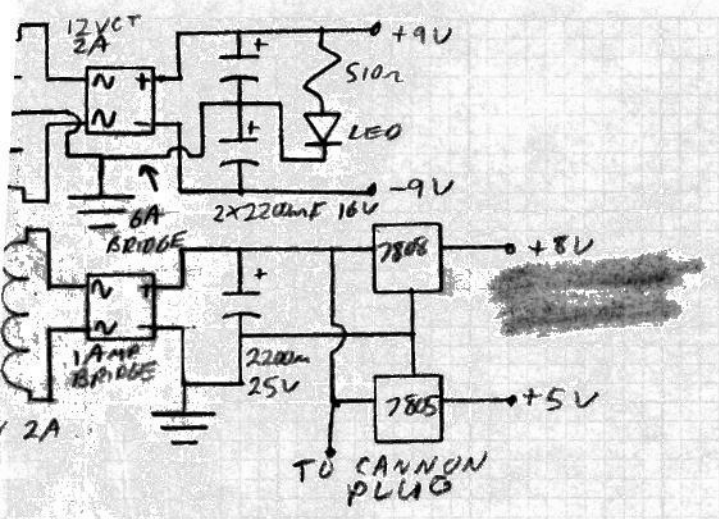 12VCT
2A
~ +
~ −
+
+
+9V
510Ω
LED
-9V
6A
BRIDGE
2X2200mF 16V
~ +
~ −
1 AMP
BRIDGE
+
2200m
25V
7808
+8V
7805
+5V
2A
TO CANNON
PLUG